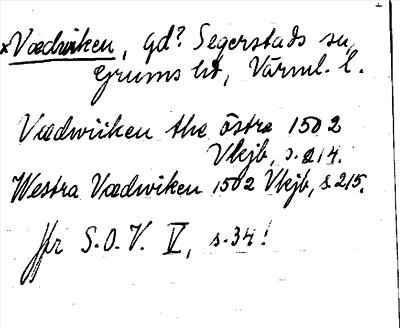 ×Vædwiken, gd? Segerstads sn,
Grums hd, Värml. l.
Vædwiiken the östra 1502
Vkjb, s. 214.
Westra Vædwiken 1502 Vkjb, s. 215.
Jfr S.O.V. V, s. 34!